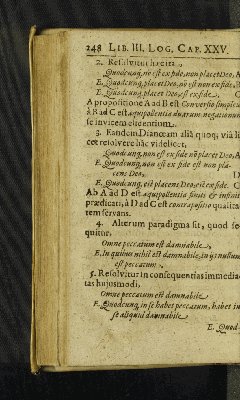 248 LIB. III. LOG. CAP. XXV.
2. Resolvitur hac ita.
Quodcunq, nō est ex fide, non placet Deo, A
E. Quodcunq, placet Deo, nō est non ex fide, B
E. Quodcunq, placet Deo, est ex fide. C
A propositione A ad B est Conversio simplex
à B ad C est æquipollentia duarum negationum
se invicem elidentium.
3. Eandem Dianœam aliâ quoq; viâ li-
cet resolvere hâc videlicet,
Quodcunq, non est ex fide nō placet Deo, A
E. Quodcunq, non est ex fide est non pla-
cens Deo, D
E. Quodcunq, est placens Deo, est ex fide. C
Ab A ad D est æquipollentia finiti & infiniti
prædicati, à D ad C est contrapositio qualita-
tem servans.
4. Alterum paradigma sit, quod se-
quitur.
Omne peccatum est damnabile,
E. In quibus nihil est damnabile, in ijs nullum
est peccatum.
5. Resolvitur in consequentias immedia-
tas hujusmodi.
Omne peccatum est damnabile
E. Quodcunq, in se habet peccatum, habet in
se aliquid damnabile
E. Quod-